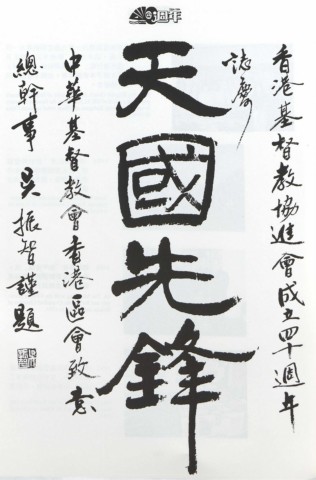 香港基督教協進會成立四十週年
誌慶
天國先鋒
中華基督教會香港區會致意
總幹事 吳振智謹題